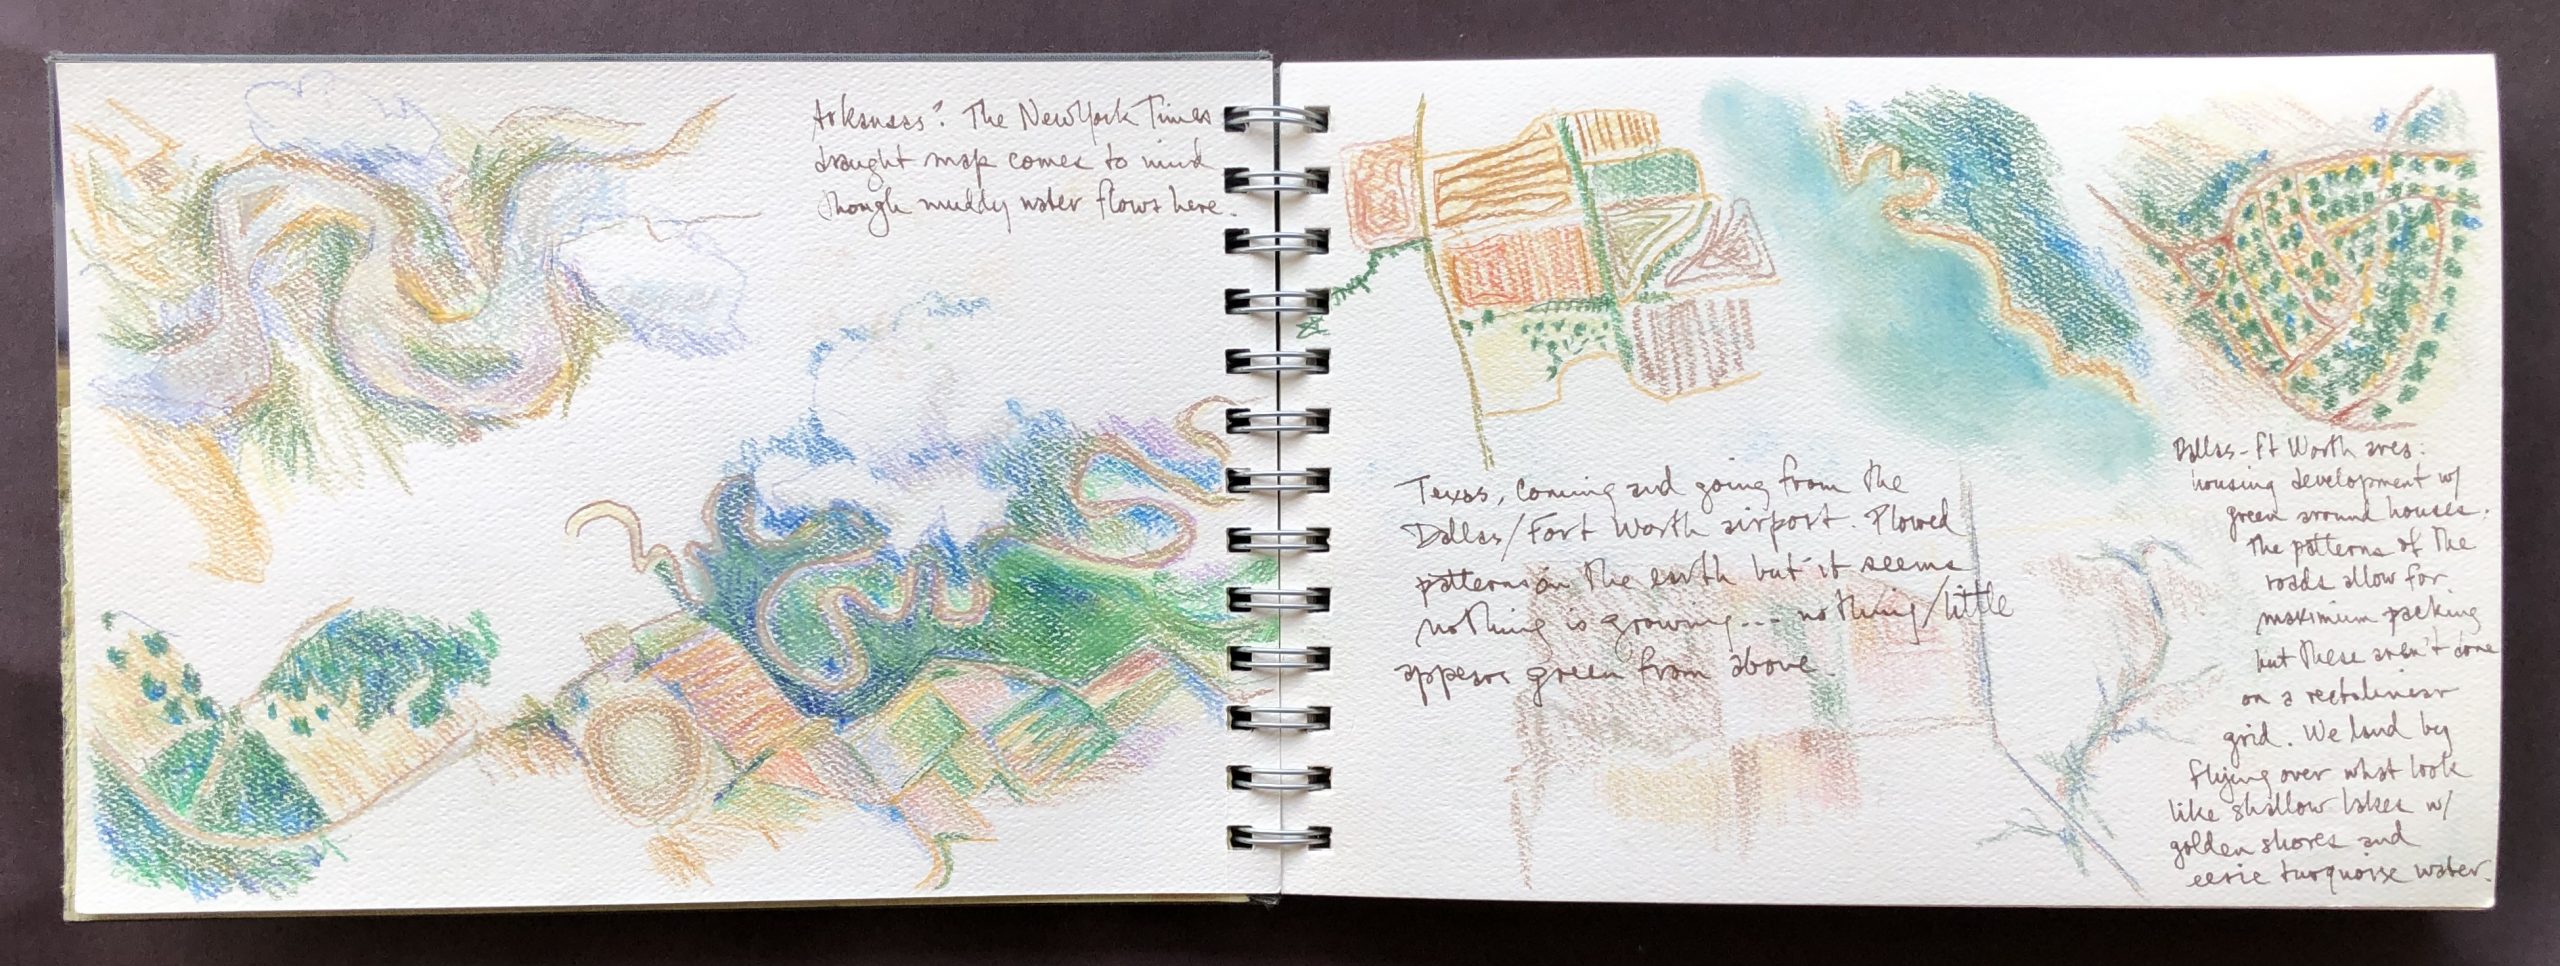 Arkansas? The New York Times
drought map comes to mind
though muddy water flows here.
Texas, coming and going from the
Dallas/Fort Worth airport. Plowed
patterns on the earth but it seems
nothing is growing... nothing/little
appears green from above.
Dallas-Ft Worth area:
housing development w/
green around houses.
The patterns of the
roads allow for
maximum packing
but these aren't done
on a rectolinear
grid. We land by
flying over what look
like shallow lakes w/
golden shores and
eerie turquoise water.